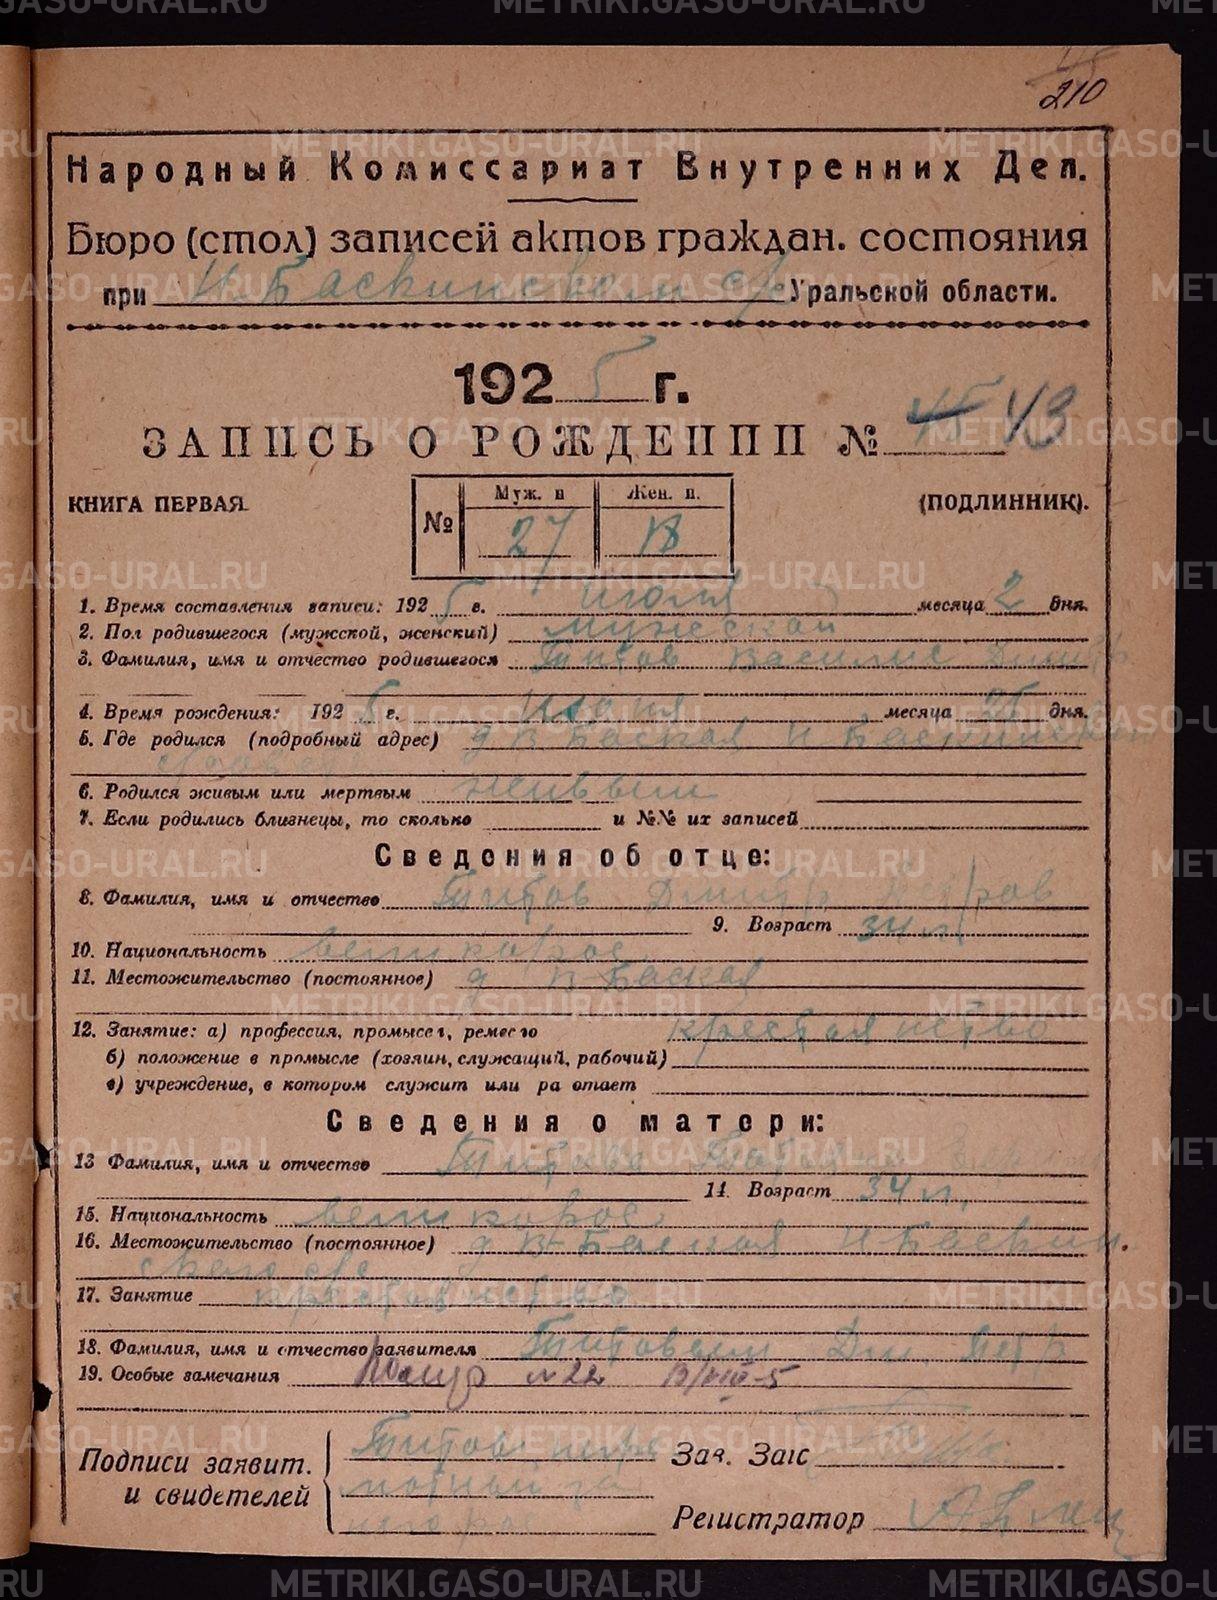 210
Народный Комиссариат Внутренних Дел.
Бюро (стол) записей актов граждан. состояния
при Н. Баскинском с/с Уральской области.
192 5 г.
ЗАПИСЬ О РОЖДЕНИИ № 45 43
КНИГА ПЕРВАЯ. (ПОДЛИННИК).
№ Муж. п Жен. п.
27 18
1. Время составления записи: 192 5 г. июля месяца 2 дня.
2. Пол родившегося (мужской, женский) мужской
3. Фамилия, имя и отчество родившегося Титов Василис Дмитр
4. Время рождения: 192 5 г. месяца 25 дня.
5. Где родился (подробный адрес) д В Баская Н Баскинской
6. Родился живым или мертвым живым
7. Если родились близнецы, то сколько и №№ их записей
Сведения об отце:
8. Фамилия, имя и отчество Титов Дмитр Петров
9. Возраст 34 л
10. Национальность великорос
11. Местожительство (постоянное) д В-Баская
12. Занятие: а) профессия, промысел, ремесло крестьянство
б) положение в промысле (хозяин, служащий, рабочий)
в) учреждение, в котором служит или ра отает
Сведения о матери:
13 Фамилия, имя и отчество Титова
14. Возраст 34 л.
15. Национальность великорос
16. Местожительство (постоянное) д В-Баская Н Баскин.
ского с/с
17. Занятие крестьянство
18. Фамилия, имя и отчество заявителя Титовым Дм. Петр
19. Особые замечания № 22 13/VIII-5
Подписи заявит. Титов негра Зав. Загс
и свидетелей мотный за
него рос Регистратор
METRIKI.GASO-URAL.RU